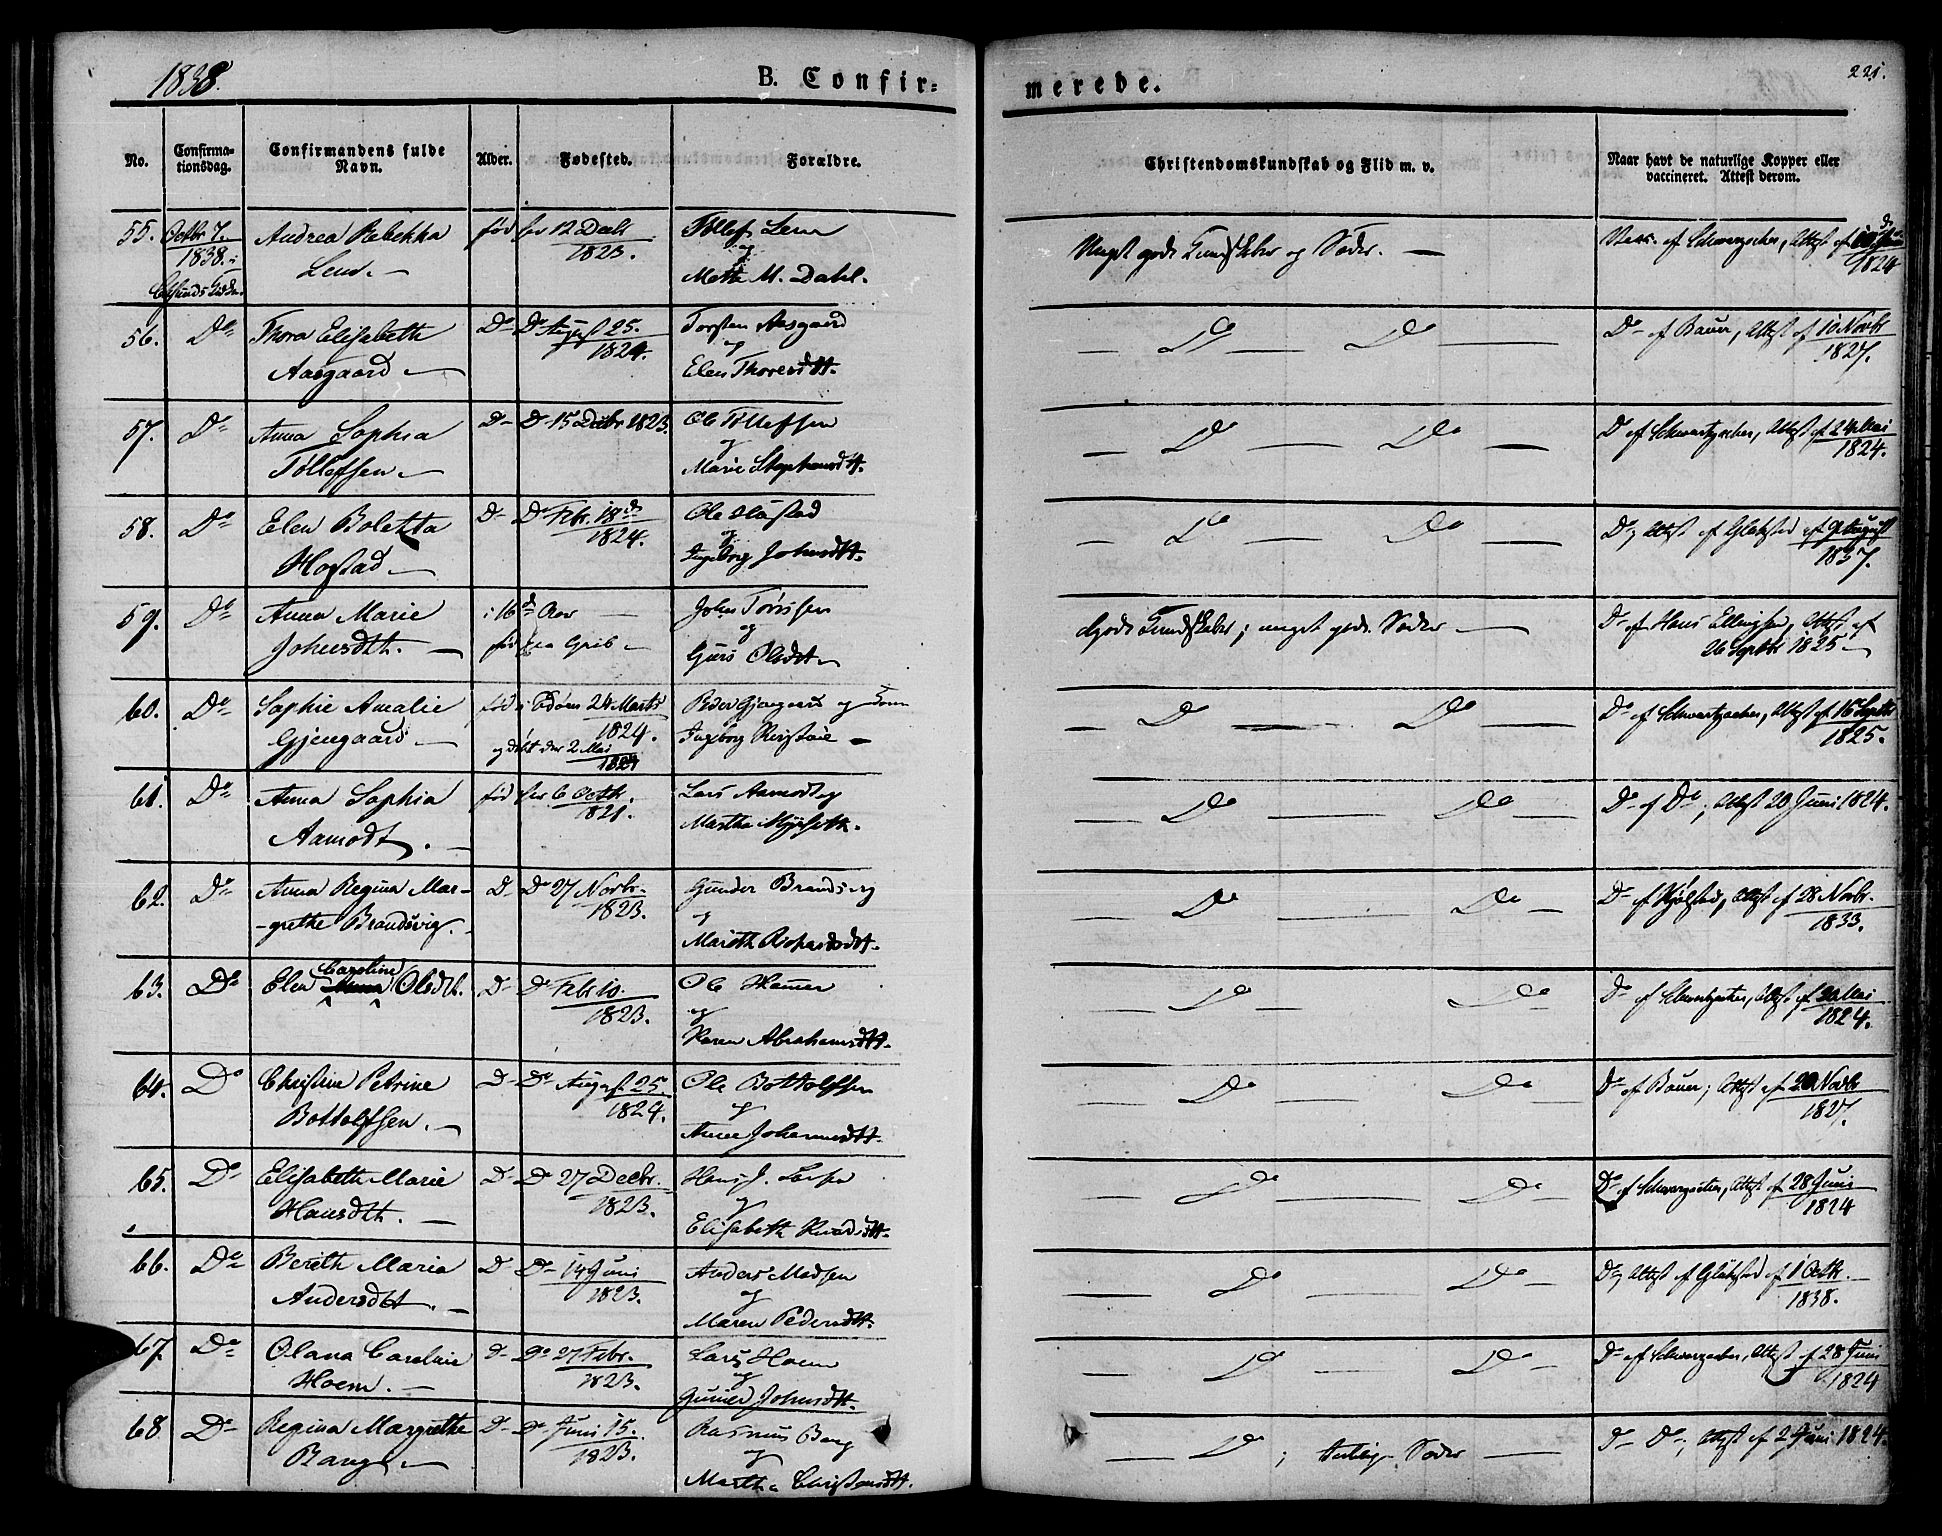 1838.
B. Confir=
merede.
221.
No.
Confirma-
tionsdag.
Confirmandens fulde
Navn.
Alder.
Fødested.
Forældre.
Christendomskundskab og Flid m. v.
Naar havt de naturlige Kopper eller
vaccineret. Attest derom.
55. Octbr 7. Andrea Rebekka fød den 12 Decbr Tollef Lem
1838. i Lem. 1823. og
Mette M. Dahl.
Meget gode Kundskaber og Sæder.
Vacc. af Schwarzacher, Attest af
1824
56. Do Thora Elisabeth Do Do August 25. Torsten Aasgaard
Aasgaard 1824. og
Elen Thoresdtt.
Do Do
Do af Bauer, Attest af 10 Novbr
1827.
57. Do Anna Sophia Do Do 15 Decbr 1823. Ole Tollefsen
Tollefsen og
Marie Stephensdtt.
Do Do
Do af Schwartzacher, Attest af 24 Mai
1824.
58. Do Elen Boletta Do Do Febr. 18de Ole Hostad
Hostad 1824. og
Ingeborg Johnsdtt.
Do Do
Do, Attest af Gløksted af 9 August
1837.
59. Do Anna Marie i 16de Aar John Tørrisen
Johnsdtt. fød paa Grib og
Guri Olsdtt
Gode Kundskaber; meget gode Sæder
Do af Hans Ellingsen, Attest af
26 Septbr 1825
60. Do Sophie Amalie fød i 24 Marts Peder Gjengaard og
Gjengaard 1824. Ingeborg
og døbt den 2 Mai
1824
Do Do
Do af Schwartzacher, Attest af 15 Septbr
1825.
61. Do Anna Sophia fød den 6 Octbr. Lars Aamodt og
Aamodt. 1821. Marthe Myrseth.
Do Do
Do af Do, Attest 20 Juni 1824.
62. Do Anna Regina Mar- Do Do 27 Novbr. Gunder Brandsvig
-grethe Brandsvig. 1823. og
Mareth Richardsdtt.
Do Do
Do af Kjølstad, Attest af 28 Novbr.
1833.
Caroline
63. Do Elen Olsdtt. Do Do Febr 10. Ole Hammer
1823. og
Karen Abrahamsdtt.
Do Do
Do af Schwartzacher, Attest af 20 Mai
1824.
64. Do Christine Petrine Do Do August 25. Ole Bottolfsen
Bottolfsen. 1824. og
Anne Johannesdtt.
Do Do
Do af Bauer; Attest af 20 Novbr
1827.
65. Do Elisabeth Marie Do Do 27 Decbr. Hans J. Larsen
Hansdtt. 1823. og
Elisabeth Knudsdtt.
Do Do
Do af Schwarzacher, Attest af 28 Juni
1824
66. Do Bereth Maria Do Do 14 Juni Anders Madsen
Andersdtt. 1823. og
Maren Pedersdtt.
Do Do
Do, Attest af Gløksted af 1 Octbr.
1838.
67. Do Olana Caroline Do Do 27 Febr. Lars Hoem
Hoem. 1823. og
Gunild Johnsdtt.
Do Do
Do af Schwarzacher, Attest af 28 Juni
1824
68. Do Regina Margrethe Do Do Juni 15. Rasmus Bang
Bang 1823. og
Martha Christensdtt.
Do; Sæder
Do Do; Attest af 2 Juni 1824.